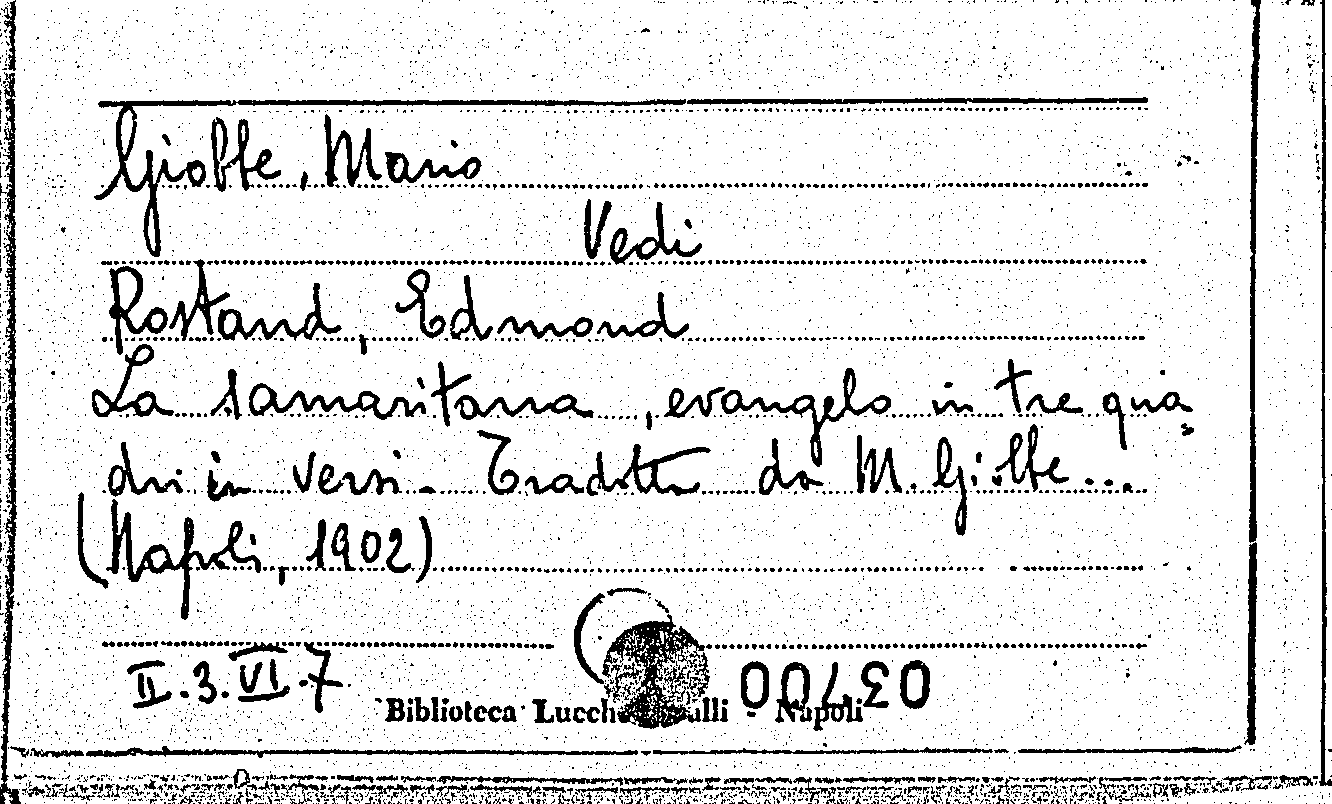 Giobbe, Mario
Vedi
Rostand, Edmond
La samaritana, evangelo in tre qua=
dri in versi - Tradotta da M. Giobbe...
(Napoli, 1902)
II.3.VI.7
Biblioteca Lucchesi Palli - Napoli
03700